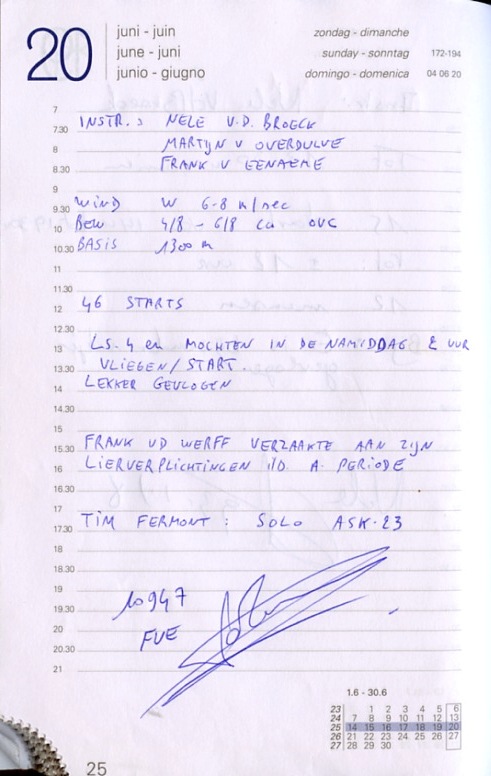 20
juni - juin
june - juni
junio - giugno
zondag - dimanche
sunday - sonntag 172-194
domingo - domenica 04 06 20
7
7.30 INSTR. : NELE V.D. BROECK
8 MARTYN V OVERDULVE
8.30 FRANK V EENAEME
9
9.30 WIND W 6-8 m/sec
10 BEW 4/8 - 6/8 cu OVC
10.30 BASIS 1300 m
11
11.30
12 46 STARTS
12.30
13 LS-4 en MOCHTEN IN DE NAMIDDAG 2 UUR
13.30 VLIEGEN/START.
14 LEKKER GEVLOGEN
14.30
15
15.30 FRANK VD WERFF VERZAAKTE AAN ZIJN
16 LIERVERPLICHTINGEN i/d A PERIODE
16.30
17
17.30 TIM FERMONT : SOLO ASK-23
18
18.30
19 10947
19.30
20 FUE
20.30
21
1.6 - 30.6
23 1 2 3 4 5 6
24 7 8 9 10 11 12 13
25 14 15 16 17 18 19 20
26 21 22 23 24 25 26 27
27 28 29 30
25